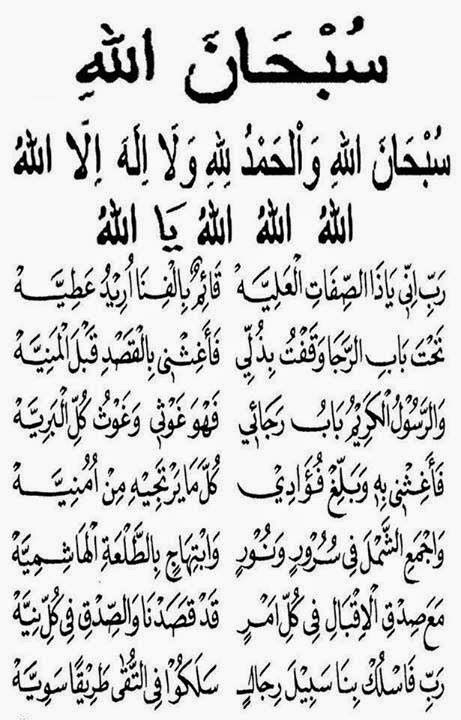 سُبْحَانَ اللهِ
سُبْحَانَ اللهِ وَالْحَمْدُ لِلهِ وَلَا إِلَهَ اِلَّا اللهُ
اللهُ اللهُ اللهُ يَا اللهُ
رَبِّ اِنِّى يَاذَا الصِّفَاتِ الْعَلِيَّهْ قَائِمٌ بِالْفِنَا اُرِيْدُ عَطِيَّهْ
تَحْتَ بَابِ الرَّجَا وَقَفْتُ بِذُلِّي فَأَغِثْنِى بِالْقَصْدِ قَبْلَ الْمَنِيَّهْ
وَالرَّسُوْلُ الْكَرِيْمُ بَابُ رَجَائِي فَهُوَ غَوْثِى وَغَوْثُ كُلِّ الْبَرِيَّهْ
فَأَغِثْنِى بِهِ وَبَلِّغْ فُؤَادِي كُلَّ مَا يَرْتَجِيْهِ مِنْ اُمْنِيَّهْ
وَاجْمَعِ الشَّمْلَ فِى سُرُوْرٍ وَنُوْرٍ وَابْتِهَاجٍ بِالطَّلْعَةِ الْهَاشِمِيَّهْ
مَعَ صِدْقِ الْاِقْبَالِ فِى كُلِّ اَمْرٍ قَدْ قَصَدْنَا وَالصِّدْقِ فِى كُلِّ نِيَّهْ
رَبِّ فَاسْلُكْ بِنَا سَبِيْلَ رِجَالٍ سَلَكُوْا فِى التُّقَى طَرِيْقًا سَوِيَّهْ